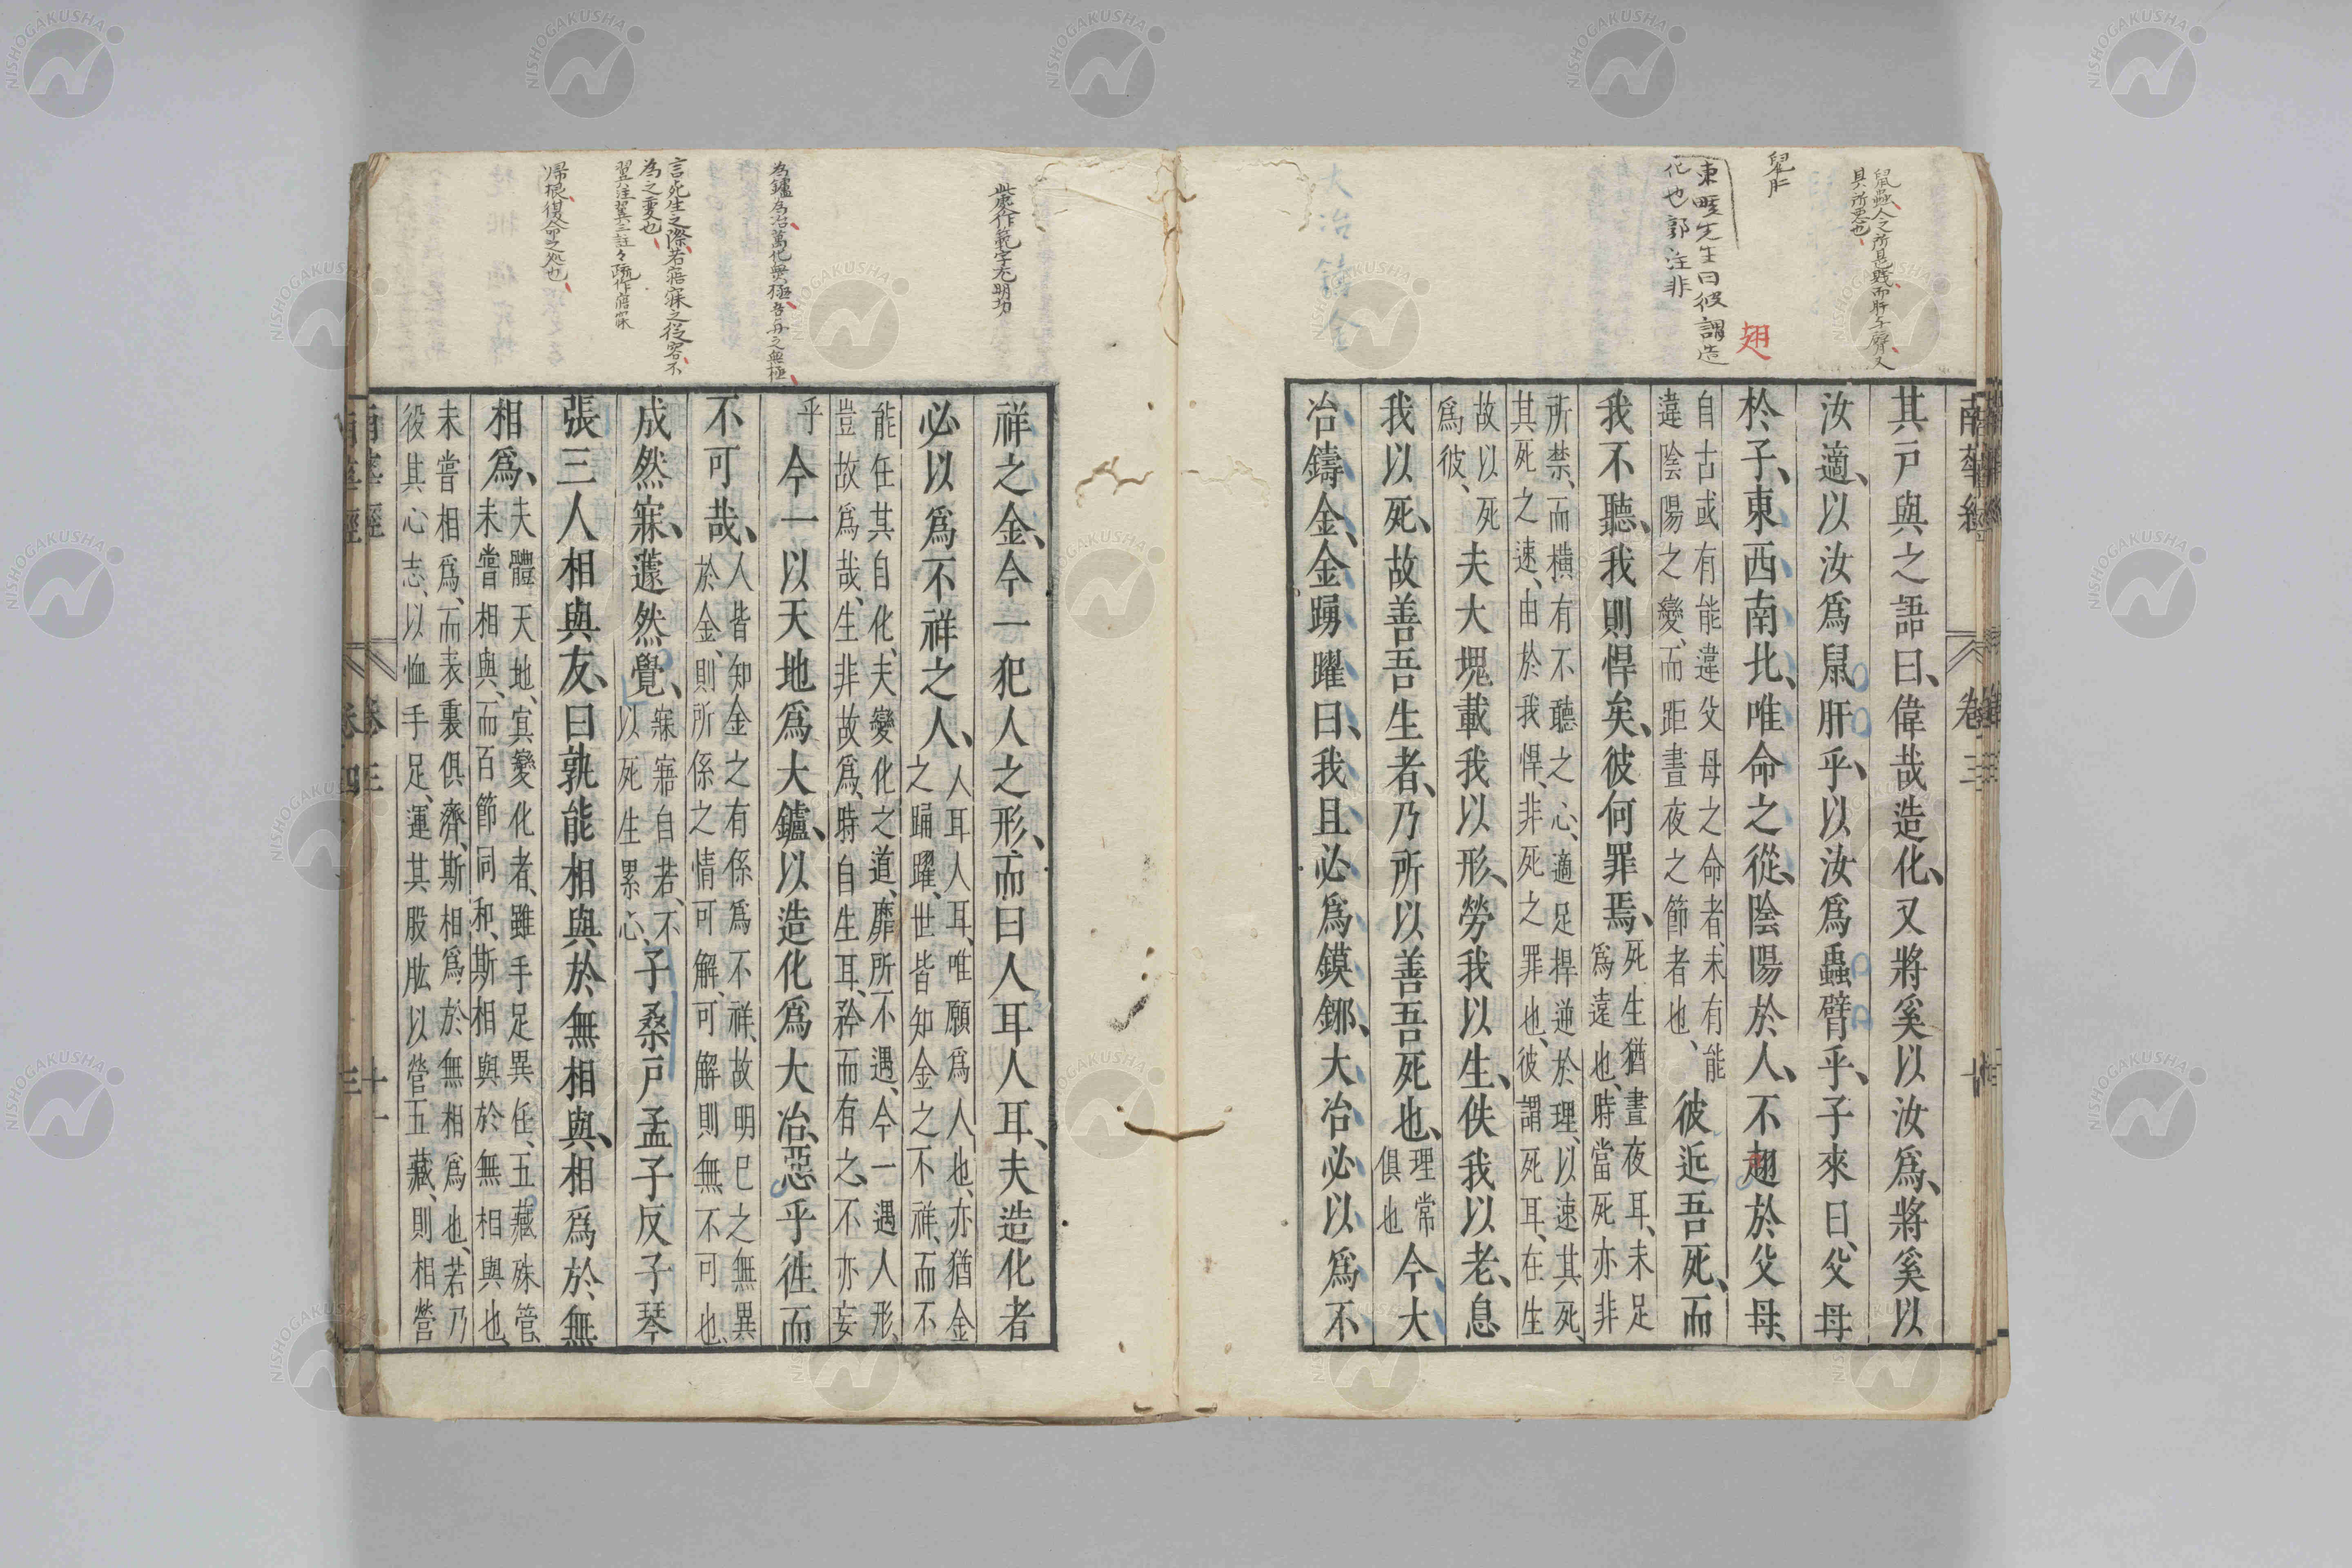 鼠蟲人之所是賤而肝与臂又
具所悪也
東畡先生曰彼謂造
化也郭注非
翅
大冶鑄金
南華經
卷三
其戸與之語曰、偉哉造化、又將奚以汝爲、將奚以
汝適、以汝爲鼠肝乎、以汝爲蟲臂乎、子來曰、父母
於子、東西南北、唯命之從、陰陽於人、不翅於父母、
自古或有能違父母之命者、未有能
違陰陽之變、而距晝夜之節者也、
彼近吾死、而
我不聽、我則悍矣、彼何罪焉、
死生猶晝夜耳、未足
爲遠也、時當死亦非
所禁、而横有不聽之心、適足捍逆於理、以速其死、
其死之速、由於我悍、非死之罪也、彼謂死耳、在生
故以死
爲彼、
夫大塊載我以形、勞我以生、佚我以老、息
我以死、故善吾生者、乃所以善吾死也、
理常
俱也
今大
冶鑄金、金踴躍曰、我且必爲鏌鋣、大冶必以爲不
此處作範字尤明功
為鑪為冶萬化無極吾与之無極
言死生之際若寤寐之從容不
為之變也
帰根復命之処也
祥之金、今一犯人之形、而曰人耳人耳、夫造化者
必以爲不祥之人、
人耳人耳、唯願爲人也、亦猶金
之踊躍、世皆知金之不祥、而不
能任其自化、夫變化之道、靡所不遇、今一遇人形、
豈故爲哉、生非故爲、時自生耳、矜而有之、不亦妄
乎
今一以天地爲大鑪、以造化爲大冶、惡乎徃而
不可哉、
人皆知金之有係爲不祥、故明已之無異
於金、則所係之情可解、可解則無不可也、
成然寐、蘧然覺、
寐寤自若、不
以死生累心、
子桑戸孟子反子琴
張三人相與友、曰孰能相與於無相與、相爲於無
相爲、
夫體天地、冥變化者、雖手足異任、五藏殊管、
未嘗相與、而百節同和、斯相與於無相與也、
未嘗相爲、而表裏俱濟、斯相爲於無相爲也、若乃
役其心志、以恤手足、運其股肱以營五藏、則相營
卷三
十一